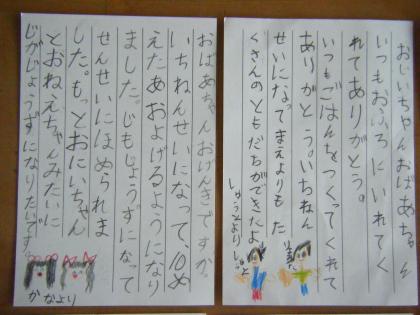 おじいちゃんおばあちゃん
いつもおふろにいれてく
れてありがとう。
いつもごはんをつくってくれて
ありがとう。いちねん
せいになってまえよりもた
くさんのともだちができたよ
しゅうとより
おばあちゃんおげんきですか。
いちねんせいになって、10め
えたあおよげるようになり
ました。じもじょうずになって
せんせいにほめられま
した。もっとおにいちゃん
とおねえちゃんみたいに
じがじょうずになりたいです。
かなより